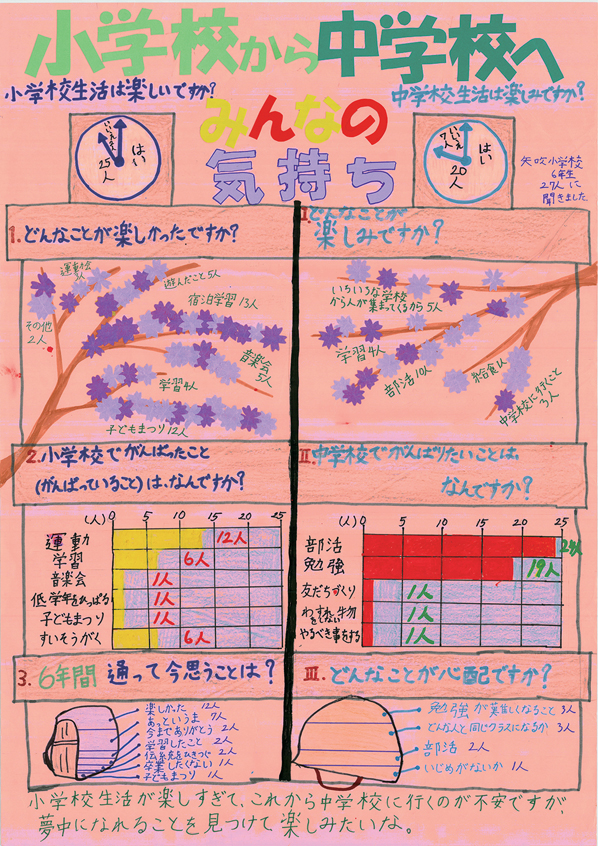 小学校から中学校へ
小学校生活は楽しいですか?
中学校生活は楽しみですか?
みんなの
気持ち
はい
25人
いいえ
はい
20人
いいえ
7人
矢吹小学校
6年生
27人に
聞きました
1.どんなことが楽しかったですか?
運動会
遊んだこと5人
宿泊学習13人
その他
2人
音楽会
5人
学習4人
子どもまつり12人
I どんなことが
楽しみですか?
いろいろな学校
から人が集まってくるから5人
学習4人
部活10人
給食1人
中学校に行くこと
3人
2.小学校でがんばったこと
(がんばっていること)は、なんですか?
(人) 0 5 10 15 20 25
運動 12人
学習 6人
音楽会 1人
低学年をひっぱる 1人
子どもまつり 1人
すいそうがく 6人
II.中学校でがんばりたいことは、
なんですか?
(人) 0 5 10 15 20 25
部活
勉強 19人
友だちづくり 1人
わすれ物
をしない 1人
やるべき事をする 1人
3.6年間通って今思うことは?
楽しかった 12人
あっというま 7人
今までありがとう 2人
学習したこと 2人
伝統をひきつぐ 2人
卒業したくない 1人
子どもまつり 1人
III.どんなことが心配ですか?
勉強が難しくなること 3人
どんな人と同じクラスになるか 3人
部活 2人
いじめがないか 1人
小学校生活が楽しすぎて、これから中学校に行くのが不安ですが、
夢中になれることを見つけて楽しみたいな。